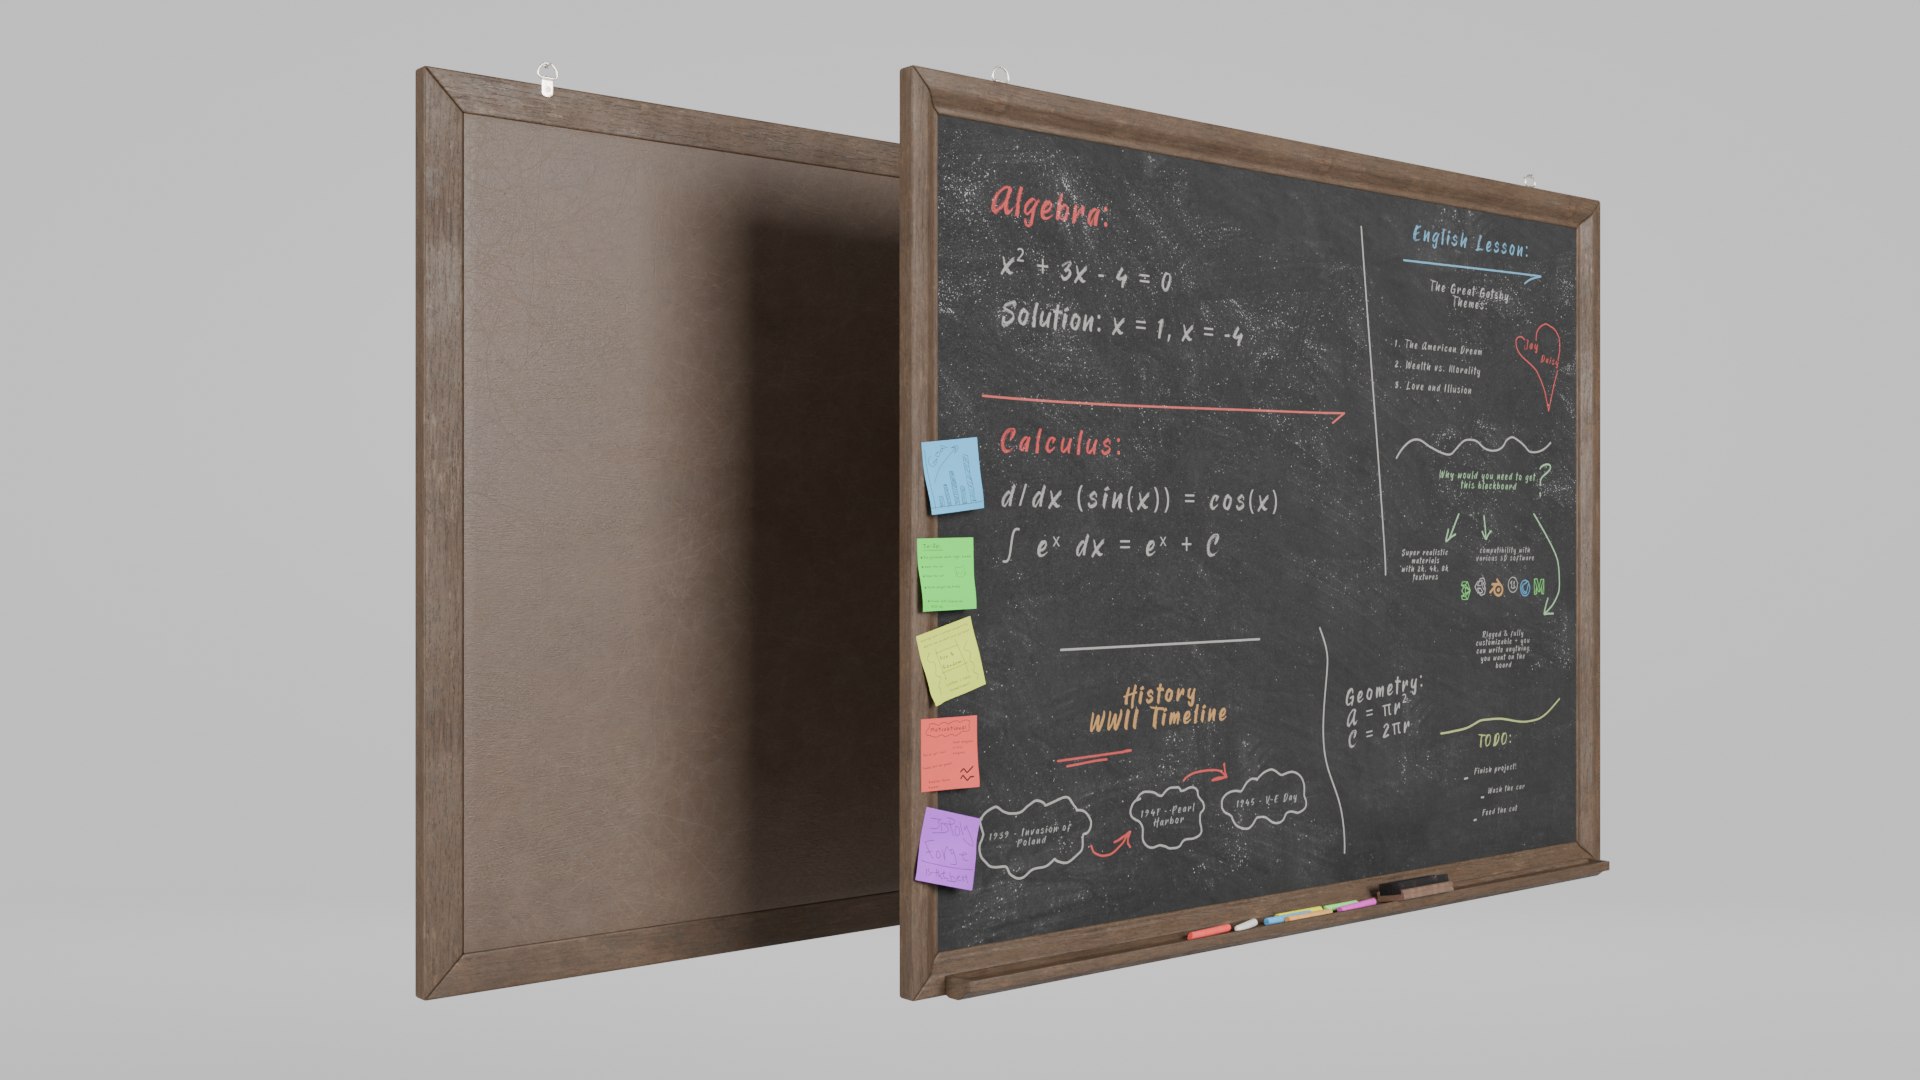 Algebra:
x² + 3x - 4 = 0
Solution: x = 1, x = -4
Calculus:
d/dx (sin(x)) = cos(x)
∫ eˣ dx = eˣ + C
History
WWII Timeline
1939 - Invasion of
Poland
1941 - Pearl
Harbor
1945 - V-E Day
English Lesson:
The Great Gatsby
Themes:
1. The American Dream
2. Wealth vs. Morality
3. Love and Illusion
Jay
Daisy
Why would you need to get
this blackboard
?
Super realistic
materials
with 2k, 4k, 8k
textures
compatibility with
various 3D software
Rigged & fully
customizable - you
can write anything
you want on the
board
Geometry:
A = πr²
C = 2πr
TODO:
- Finish project!
- Wash the car
- Feed the cat
To do:
Fun &
Random
Motivational
3DPoly
Forge